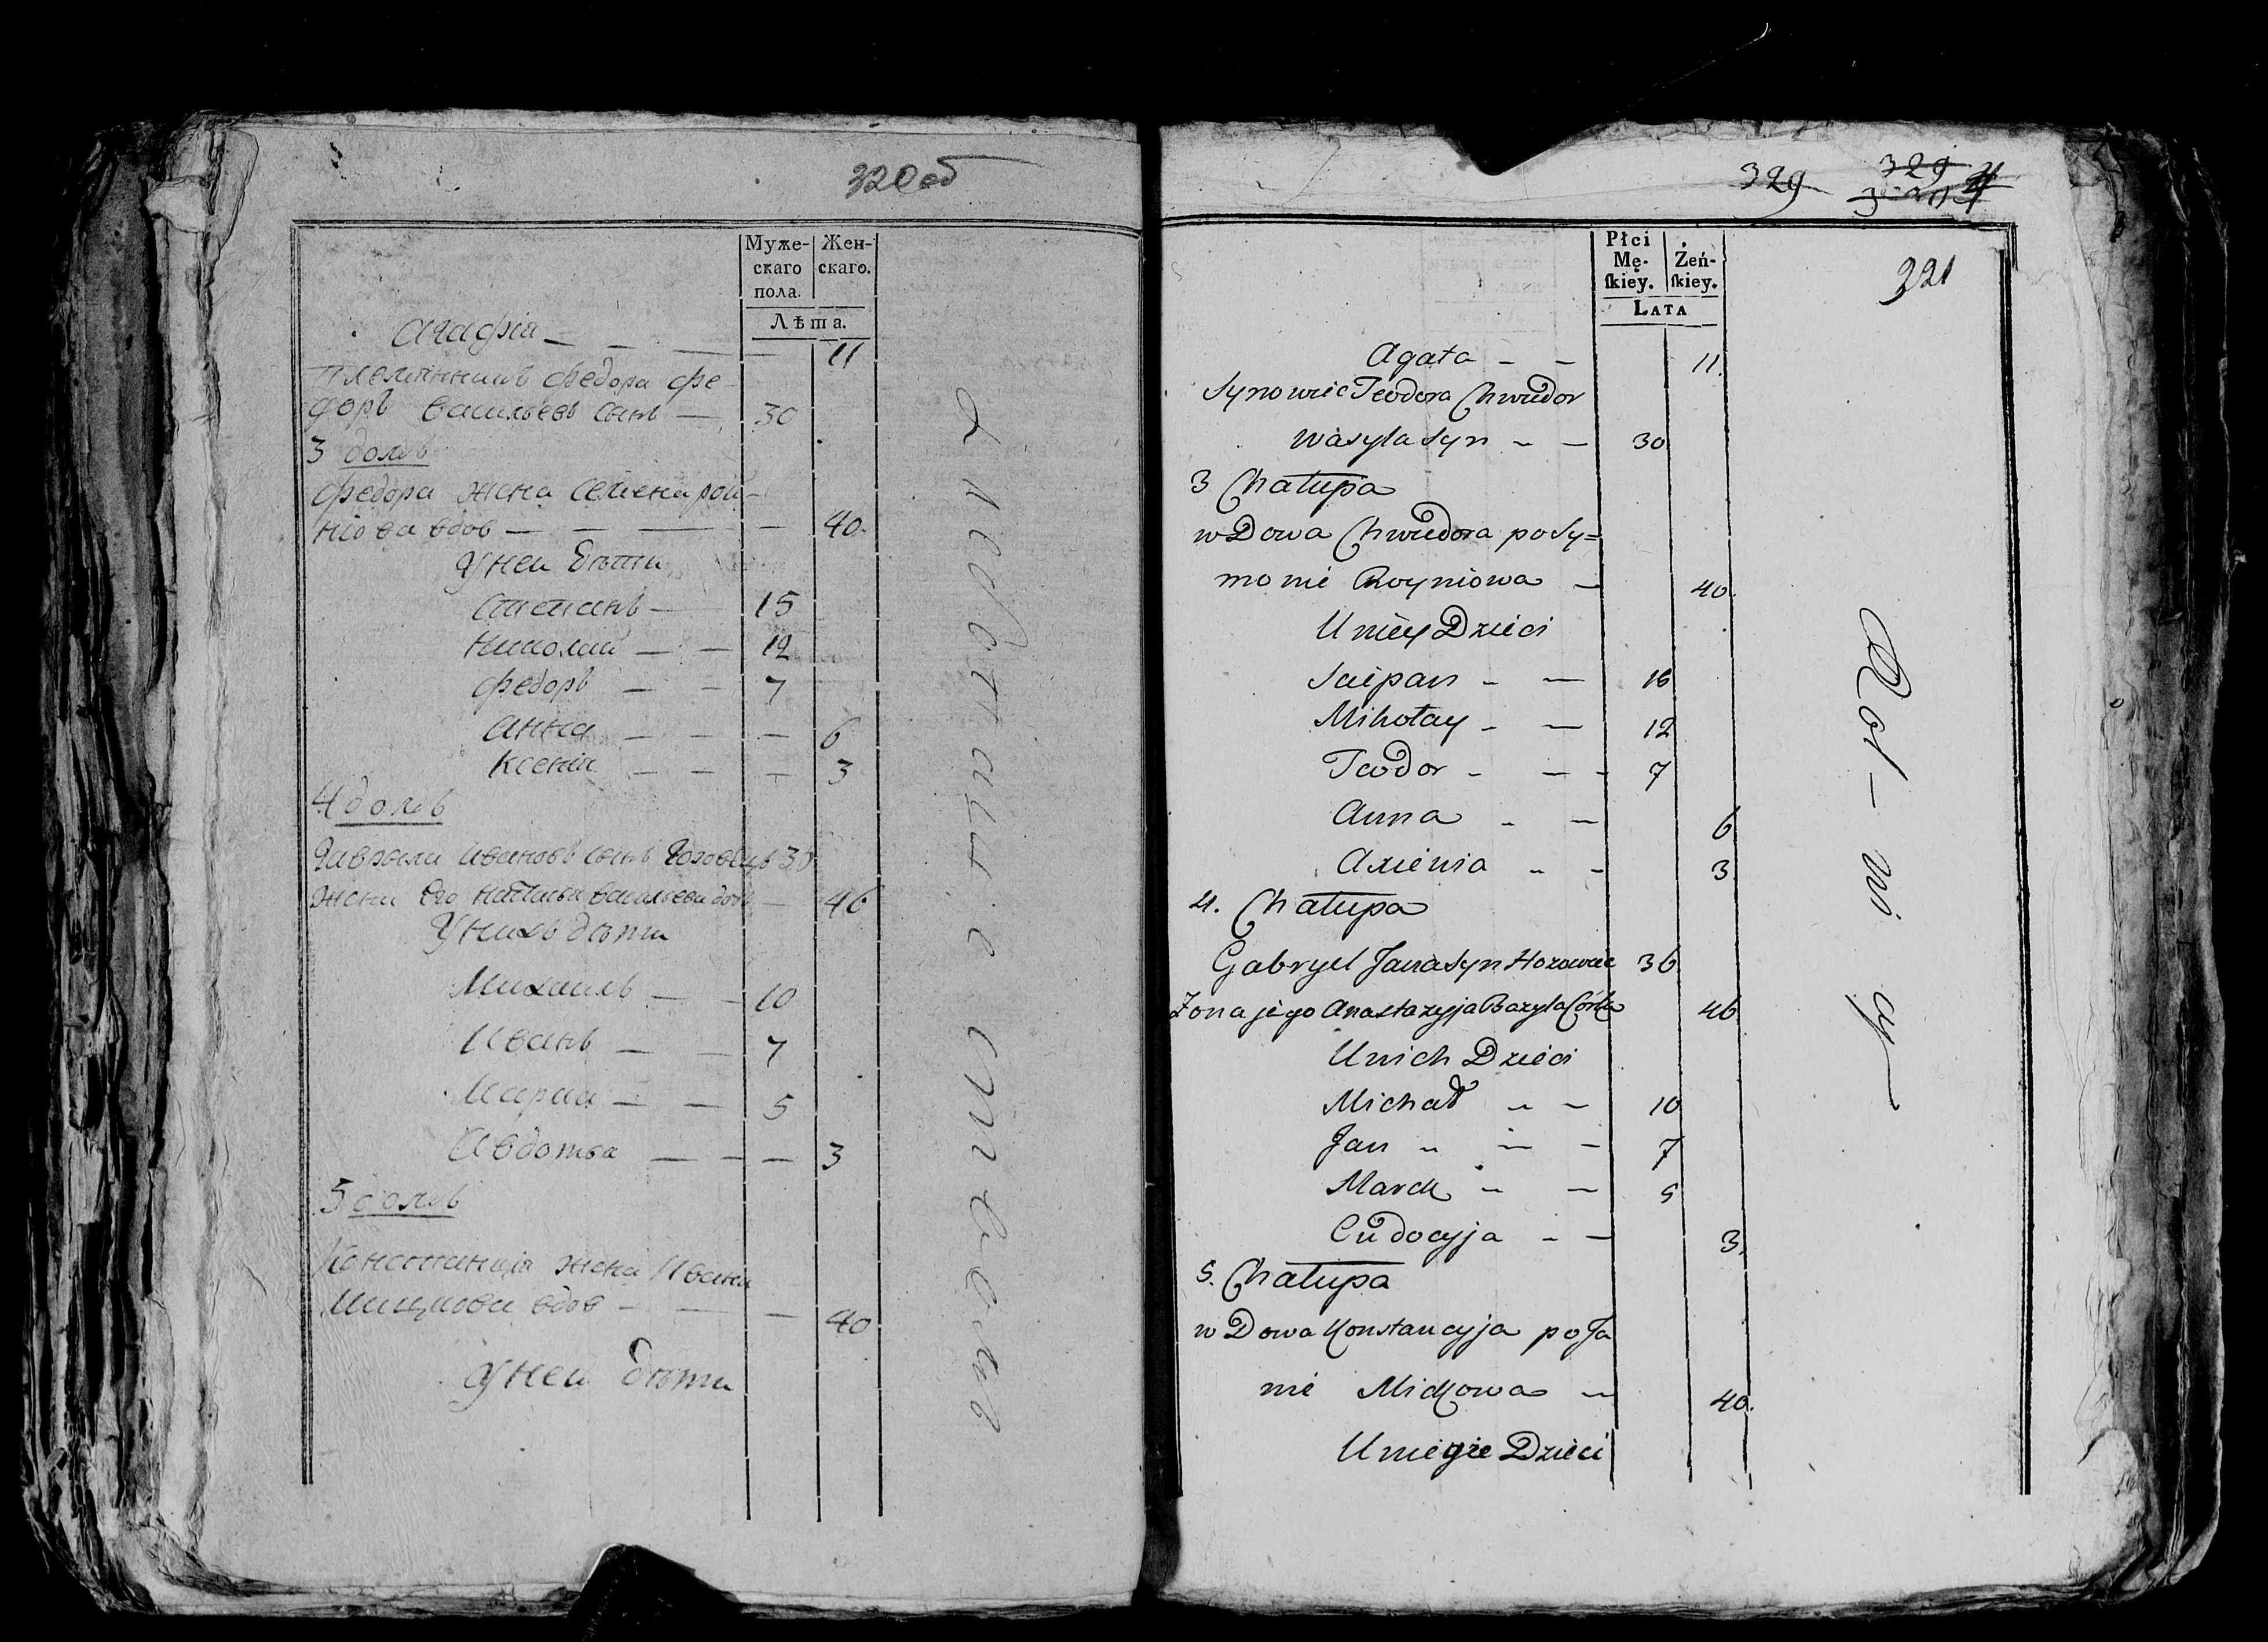 320об
Муже-
скаго
пола.
Жен-
скаго.
Лѣта.
Агафія — — — 11
Племянникъ Федора Фе-
доръ Васильевъ сынъ — 30
3 домъ
Федора жена Семена рои-
нюва вдов — — — — 40.
У ней дѣти
Степанъ — 15
Николай — — 12
Федоръ — — 7
Анна — — — 6
Ксенія — — — 3
4 домъ
Гаврила Ивановъ сынъ 36
жена его Васильева доч — 46
У нихъ дѣти
Михаилъ — — 10
Иванъ — — 7
Марка — — 5
Авдотья — — — 3
5 домъ
Констанція жена Ивана
Мицкова вдов — — — 40
У ней дѣти
329
329
221
Płci
Mę-
ſkiey.
Żeń-
ſkiey.
Lata
Agata — — 11.
Synowiec Teodora Chwedor
Wasyla Syn — — 30
3 Chałupa
wDowa Chwedora po Sy=
monie Royniowa — 40.
Uniey Dzieci
Sciepan — — 16
Mikołay — — 12
Teodor — — — 7
Anna — — 6
Axienia — — 3
4. Chałupa
Gabryel Jana Syn Horowiec 36
Żona jego Anastazyja Bazyla Córka 46
Unich Dzieci
Michał — — 10
Jan — — — 7
Marek — — 5
Eudocyja — — 3.
5. Chałupa
wDowa Konstancyja po Ja
nie Mickowa — 40.
Unieyże Dzieci